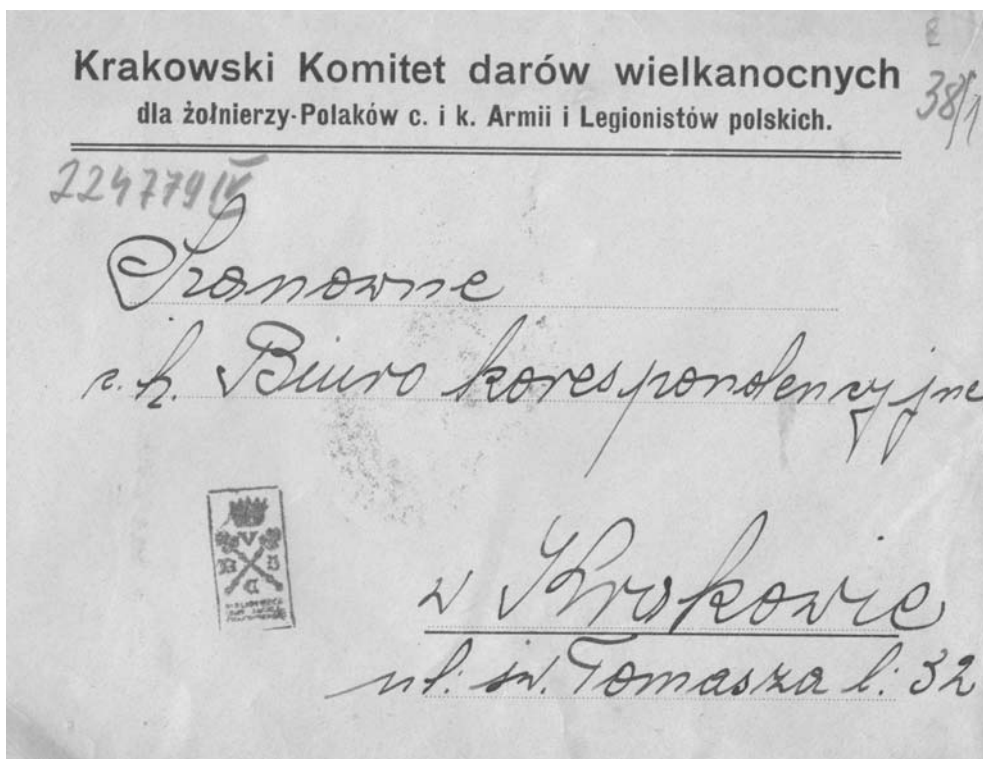 Krakowski Komitet darów wielkanocnych
dla żołnierzy-Polaków c. i k. Armii i Legionistów polskich.
38/1
224779 IV
Szanowne
c. k. Biuro korespondencyjne
w Krakowie
ul. św. Tomasza l: 32